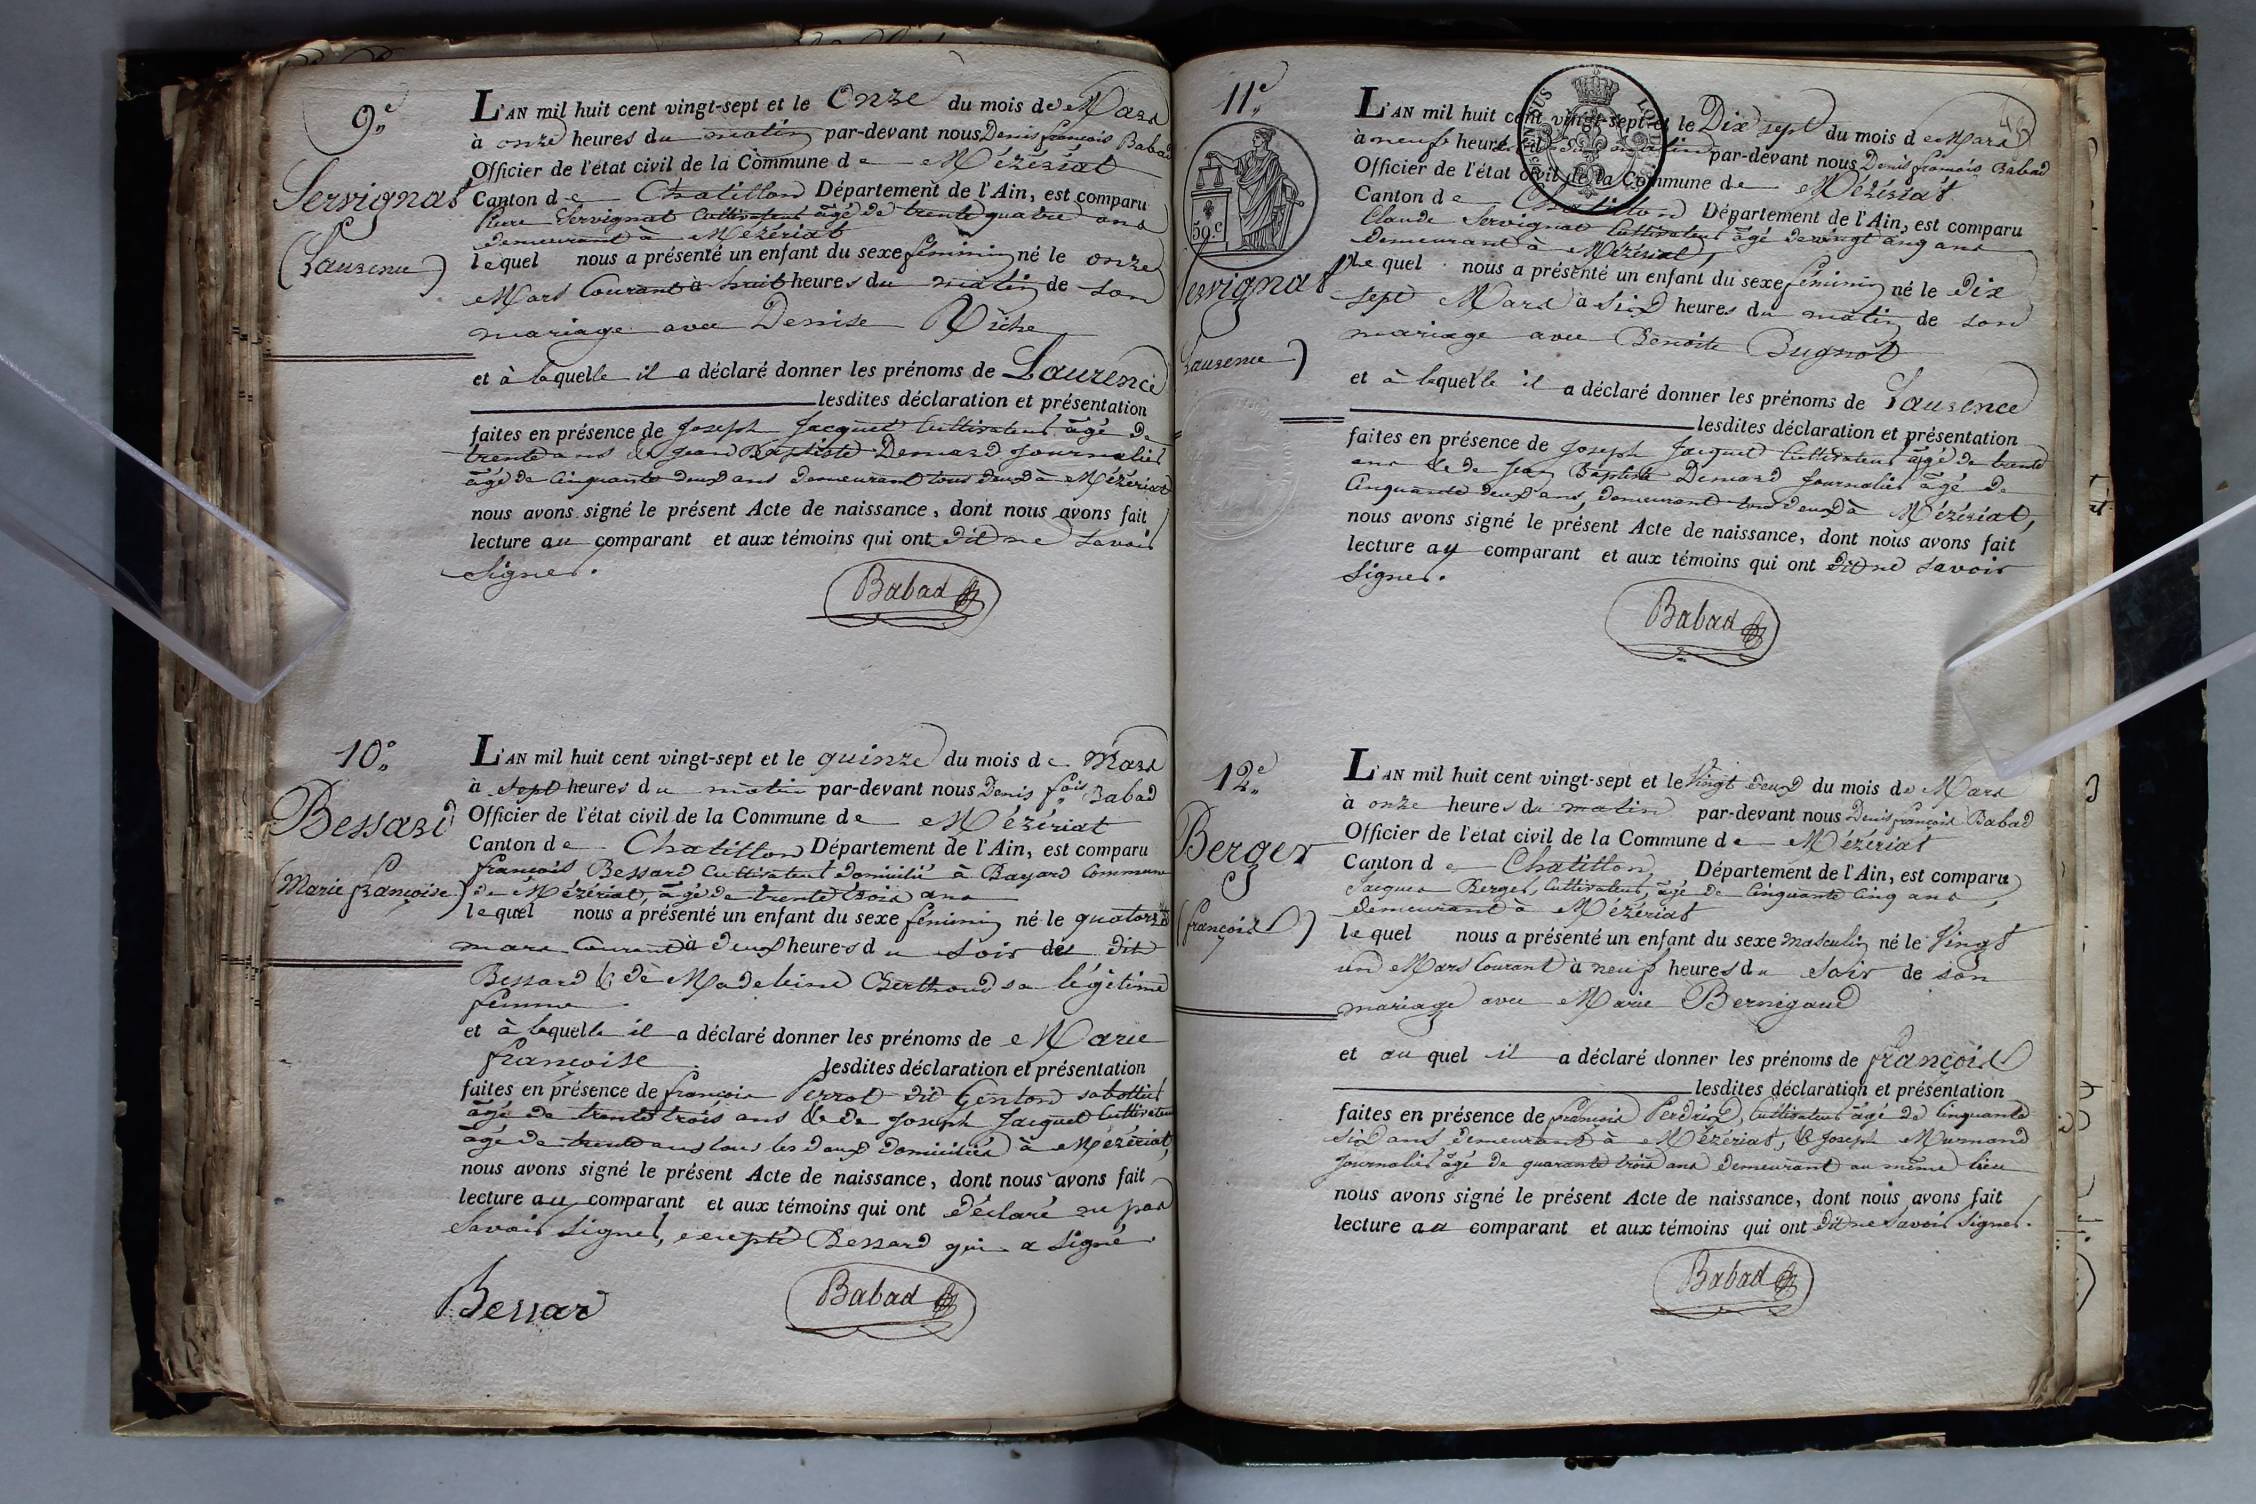 9e
Servignat
(Laurence)
L'AN mil huit cent vingt-sept et le Onze du mois de Mars
à onze heures du matin par-devant nous Denis françois Babad
Officier de l'état civil de la Commune de Mézériat
Canton de Chatillon Département de l'Ain, est comparu
Pierre Servignat Cultivateur âgé de trente quatre ans
demeurant à Mézériat
lequel nous a présenté un enfant du sexe féminin né le onze
Mars Courant à huit heures du matin de son
mariage avec Denise Riche
et à laquelle il a déclaré donner les prénoms de Laurence
lesdites déclaration et présentation
faites en présence de Joseph Jacquet Cultivateur âgé de
trente ans & Jean Baptiste Demard Journalier
âgé de Cinquante deux ans demeurant tous deux à Mézériat
nous avons signé le présent Acte de naissance, dont nous avons fait
lecture au comparant et aux témoins qui ont dit ne savoir
signer.
Babad
10e
Bessard
(Marie françoise)
L'AN mil huit cent vingt-sept et le quinze du mois de Mars
à sept heures du matin par-devant nous Denis fois Babad
Officier de l'état civil de la Commune de Mézériat
Canton de Chatillon Département de l'Ain, est comparu
françois Bessard Cultivateur domicilié à Bayard Commune
de Mézériat, âgé de trente trois ans
lequel nous a présenté un enfant du sexe féminin né le quatorze
mars Courant à deux heures du soir du dit
Bessard & de Madeleine Berthoud sa légitime
femme
et à laquelle il a déclaré donner les prénoms de Marie
françoise lesdites déclaration et présentation
faites en présence de françois Perrot dit Genton sabottier
âgé de trente trois ans & de Joseph Jacquet Cultivateur
âgé de trente ans tous les deux domiciliés à Mézériat,
nous avons signé le présent Acte de naissance, dont nous avons fait
lecture au comparant et aux témoins qui ont déclaré ne pas
savoir signer, excepté Bessard qui a signé.
Bessar
Babad
11e
50 c
Servignat
Laurence)
L'AN mil huit cent vingt-sept et le Dix sept du mois de Mars
à neuf heures du matin par-devant nous Denis françois Babad
Officier de l'état civil de la Commune de Mézériat
Canton de Chatillon Département de l'Ain, est comparu
Claude Servignat Cultivateur âgé de vingt cinq ans
demeurant à Mézériat,
lequel nous a présenté un enfant du sexe féminin né le dix
sept Mars à six heures du matin de son
mariage avec Benoite Bugnot
et à laquelle il a déclaré donner les prénoms de Laurence
lesdites déclaration et présentation
faites en présence de Joseph Jacquet Cultivateur âgé de trente
ans & de Jean Baptiste Demard Journalier âgé de
Cinquante deux ans, demeurant tous deux à Mézériat,
nous avons signé le présent Acte de naissance, dont nous avons fait
lecture au comparant et aux témoins qui ont dit ne savoir
signer.
Babad
12e
Berger
(françois)
L'AN mil huit cent vingt-sept et le Vingt deux du mois de Mars
à onze heures du matin par-devant nous Denis françois Babad
Officier de l'état civil de la Commune de Mézériat
Canton de Chatillon Département de l'Ain, est comparu
Jacques Berger, Cultivateur, âgé de Cinquante Cinq ans,
demeurant à Mézériat
lequel nous a présenté un enfant du sexe masculin né le Vingt
un Mars Courant à neuf heures du soir de son
mariage avec Marie Bernigaud
et au quel il a déclaré donner les prénoms de françois
lesdites déclaration et présentation
faites en présence de françois Perdrix, Cultivateur âgé de Cinquante
six ans demeurant à Mézériat, & Joseph Murmand
Journalier âgé de quarante trois ans demeurant au même lieu
nous avons signé le présent Acte de naissance, dont nous avons fait
lecture au comparant et aux témoins qui ont dit ne savoir signer.
Babad